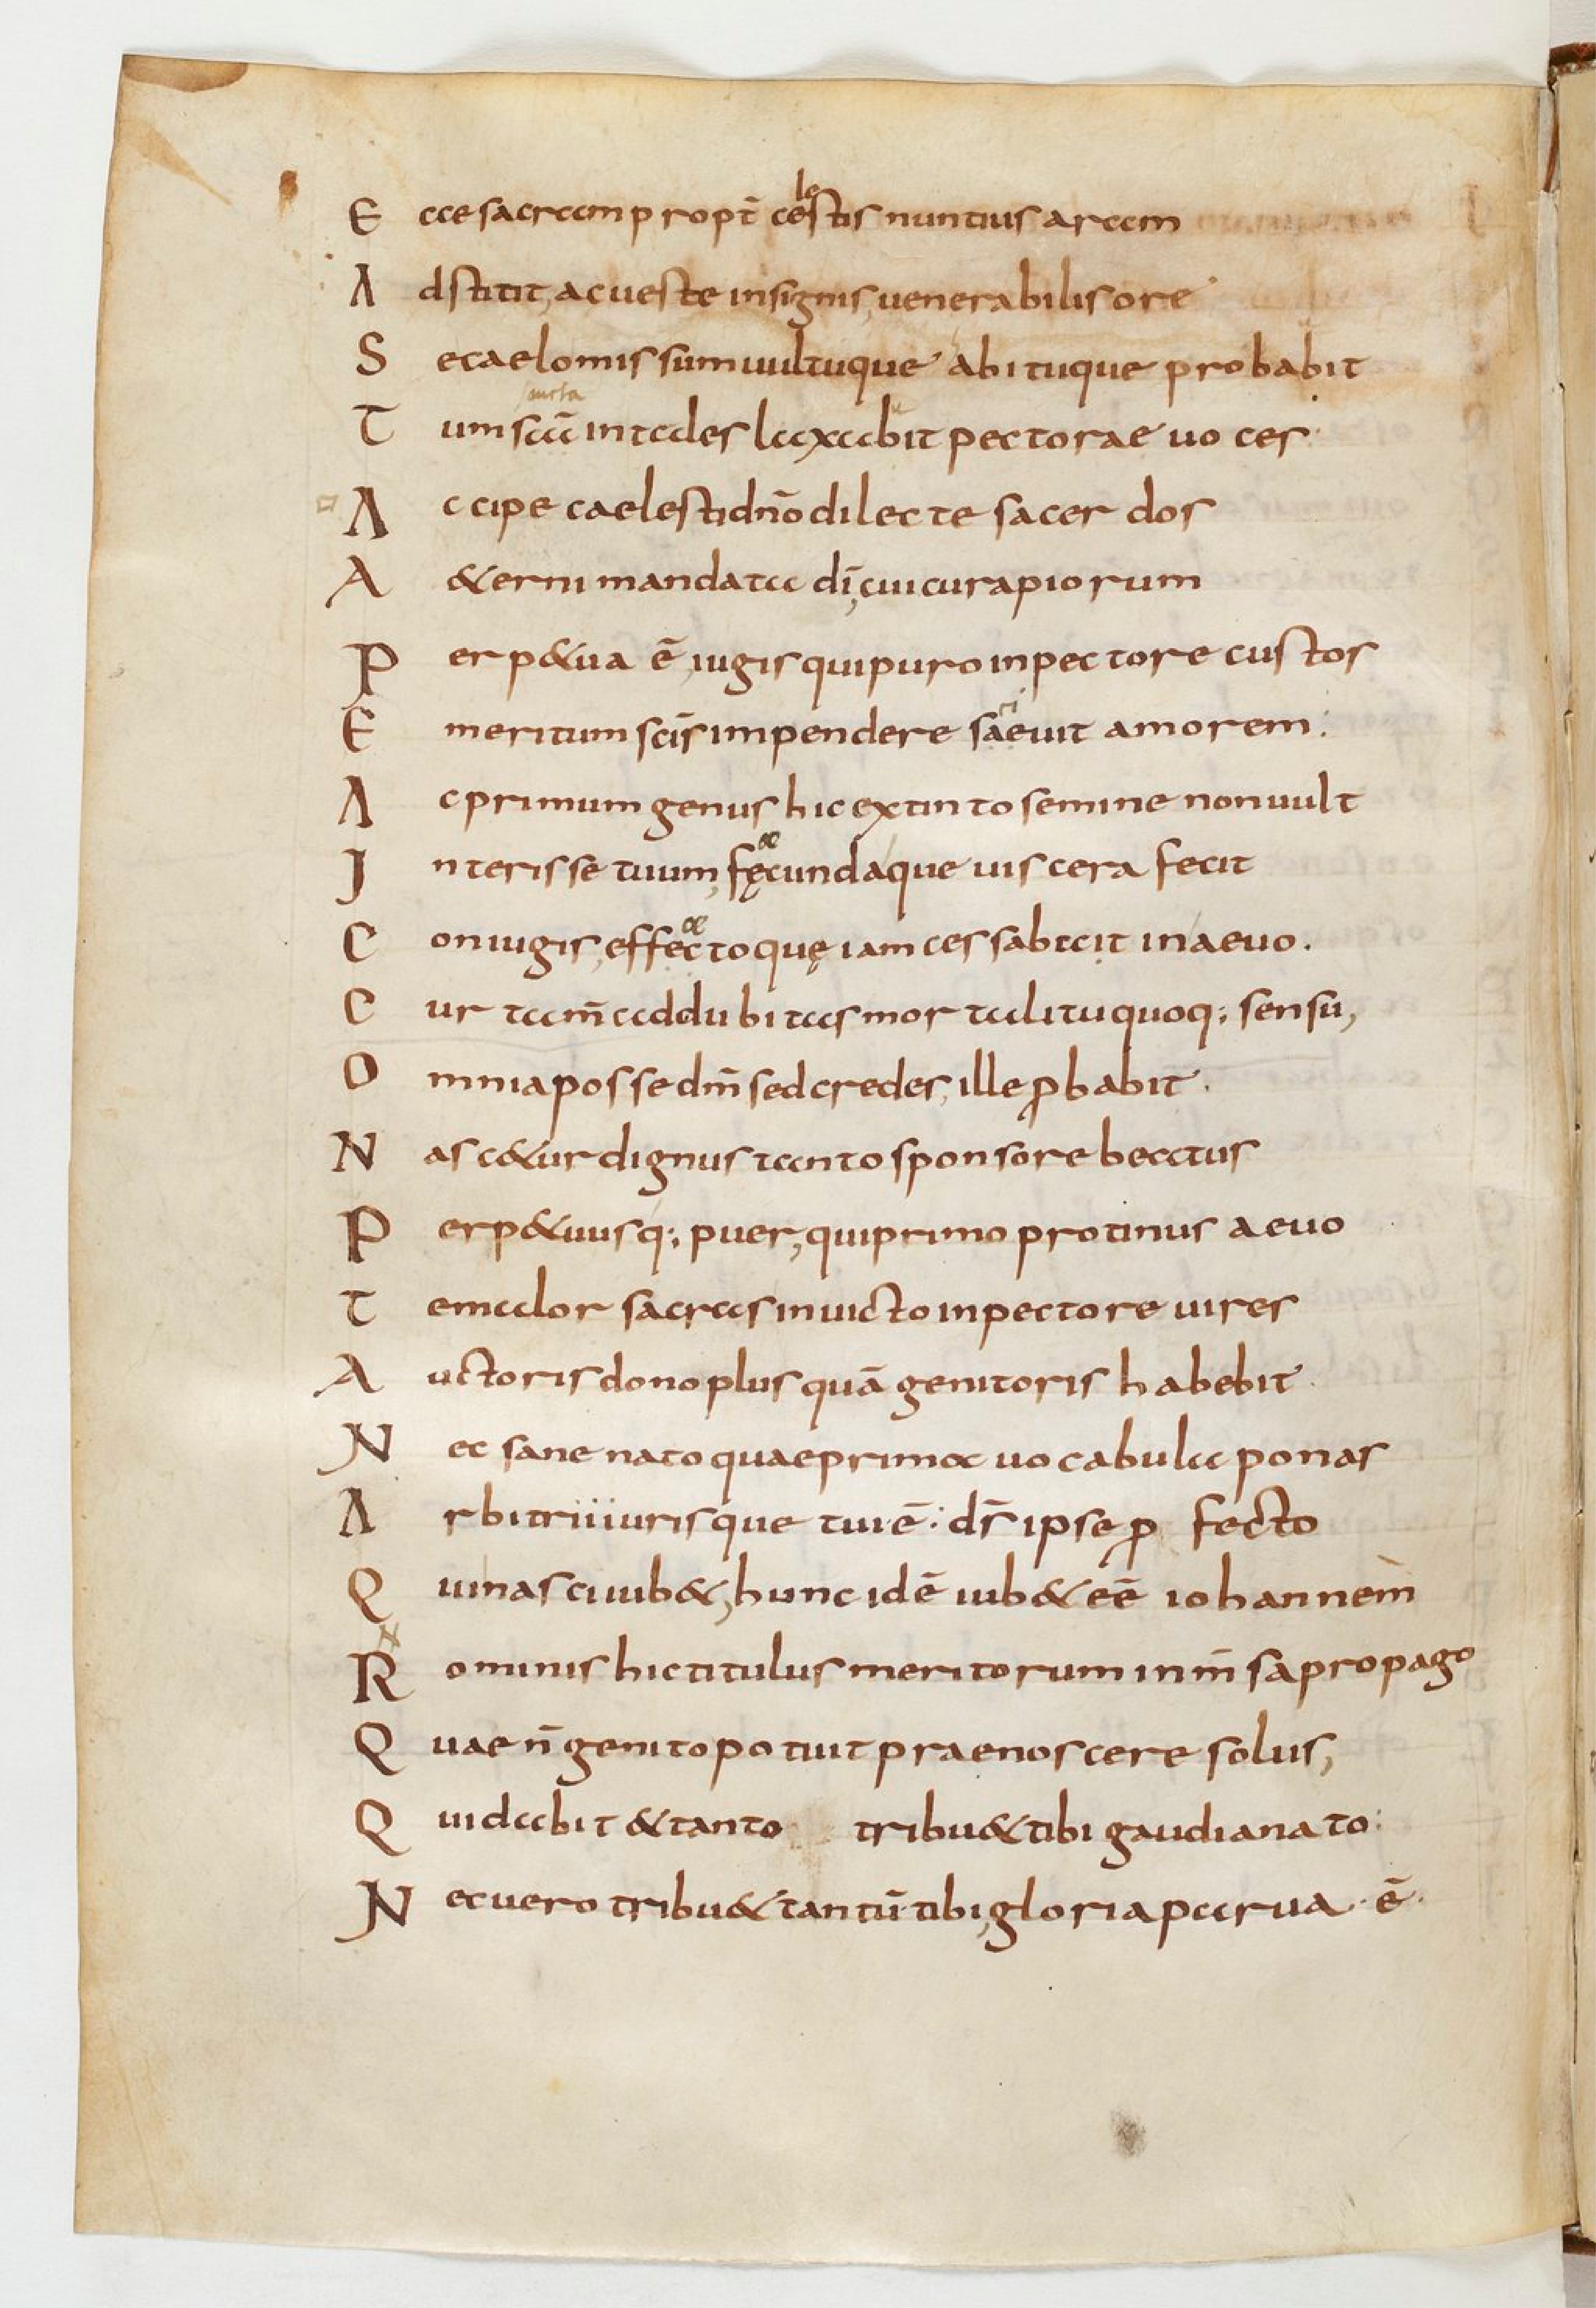 E cce sacram propt̄ celestis nuntius arcem
A dstitit, ac ueste insignis, uenerabilis ore
S e caelo missum uultuque abituque probabit
T um sc̄a intades laxabit pectorae uoces
A ccipe caelesti dn̄o dilecte sacerdos
A &erni mandata dī, cui cura piorum
P erp&ua ē, iugis qui puro in pectore custos
E meritum scīs impendere saeuit amorem:
A c primum genus hic extinto semine non uult
I nterisse tuum, fęcundaque uiscera fecit
C oniugis, effectoquę iam cessabat in aeuo.
C ur tam̄ addubitas mortali tu quoq; sensu,
O mnia posse dm̄ sed credes, ille ꝓbabit.
N asc&ur dignus tanto sponsore beatus
P erp&uusq; puer, qui primo protinus aeuo
T emalor sacras inuicto in pectore uires
A uctoris dono plus quā genitoris habebit.
N ec sane nato quae prima uocabula ponas
A rbitrii iurisque tui ē: ds̄ ipse ꝓ fecto
Q ui nasci iub&, hunc idē iub& eē iohannem
R ominis hic titulus meritorum inm̄sa propago
Q uae n̄ genito potuit praenoscere solus,
Q ui dabit & tanto tribu& tibi gaudia nato:
N ec uero tribu& tantū tibi, gloria parua ē.